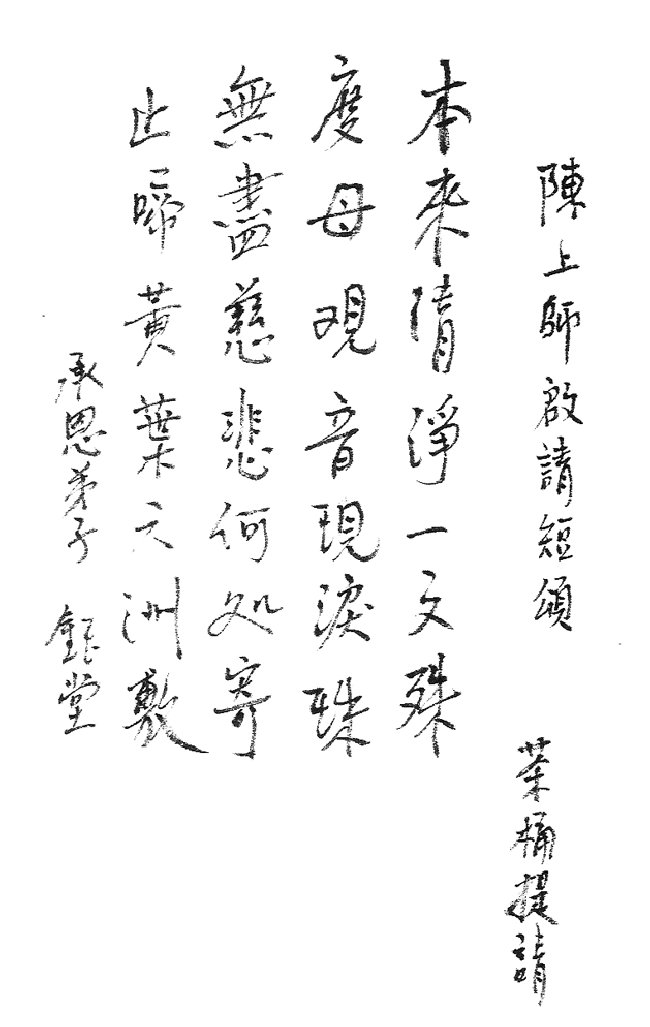 陳上師啟請短頌
茶桶提請
本來清淨一文殊
度母观音現淚珠
無盡慈悲何処寄
止啼黃葉六洲敷
承恩弟子 鈺堂